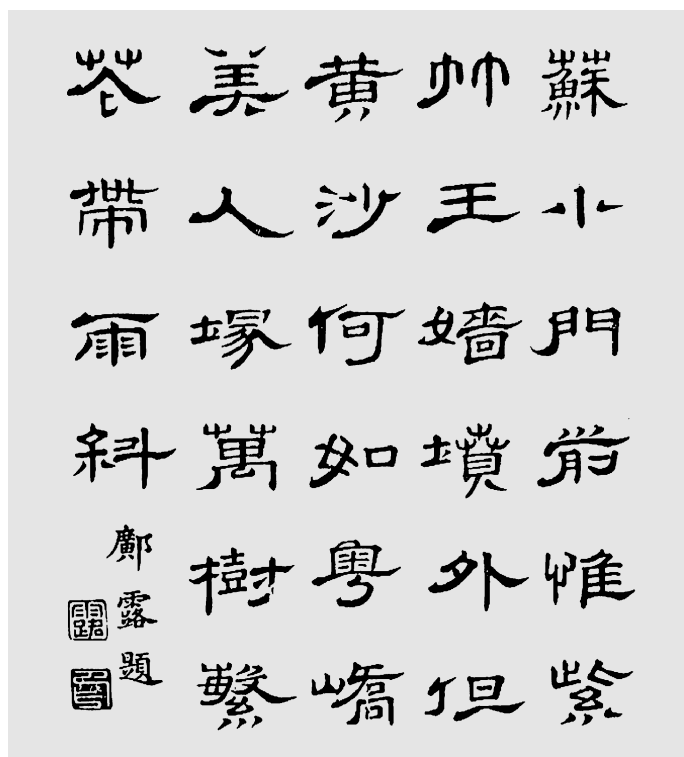 蘇小門前惟紫
竹王嬙墳外但
黃沙何如粵嶠
美人塚萬樹繁
花帶雨斜
鄺露題
露